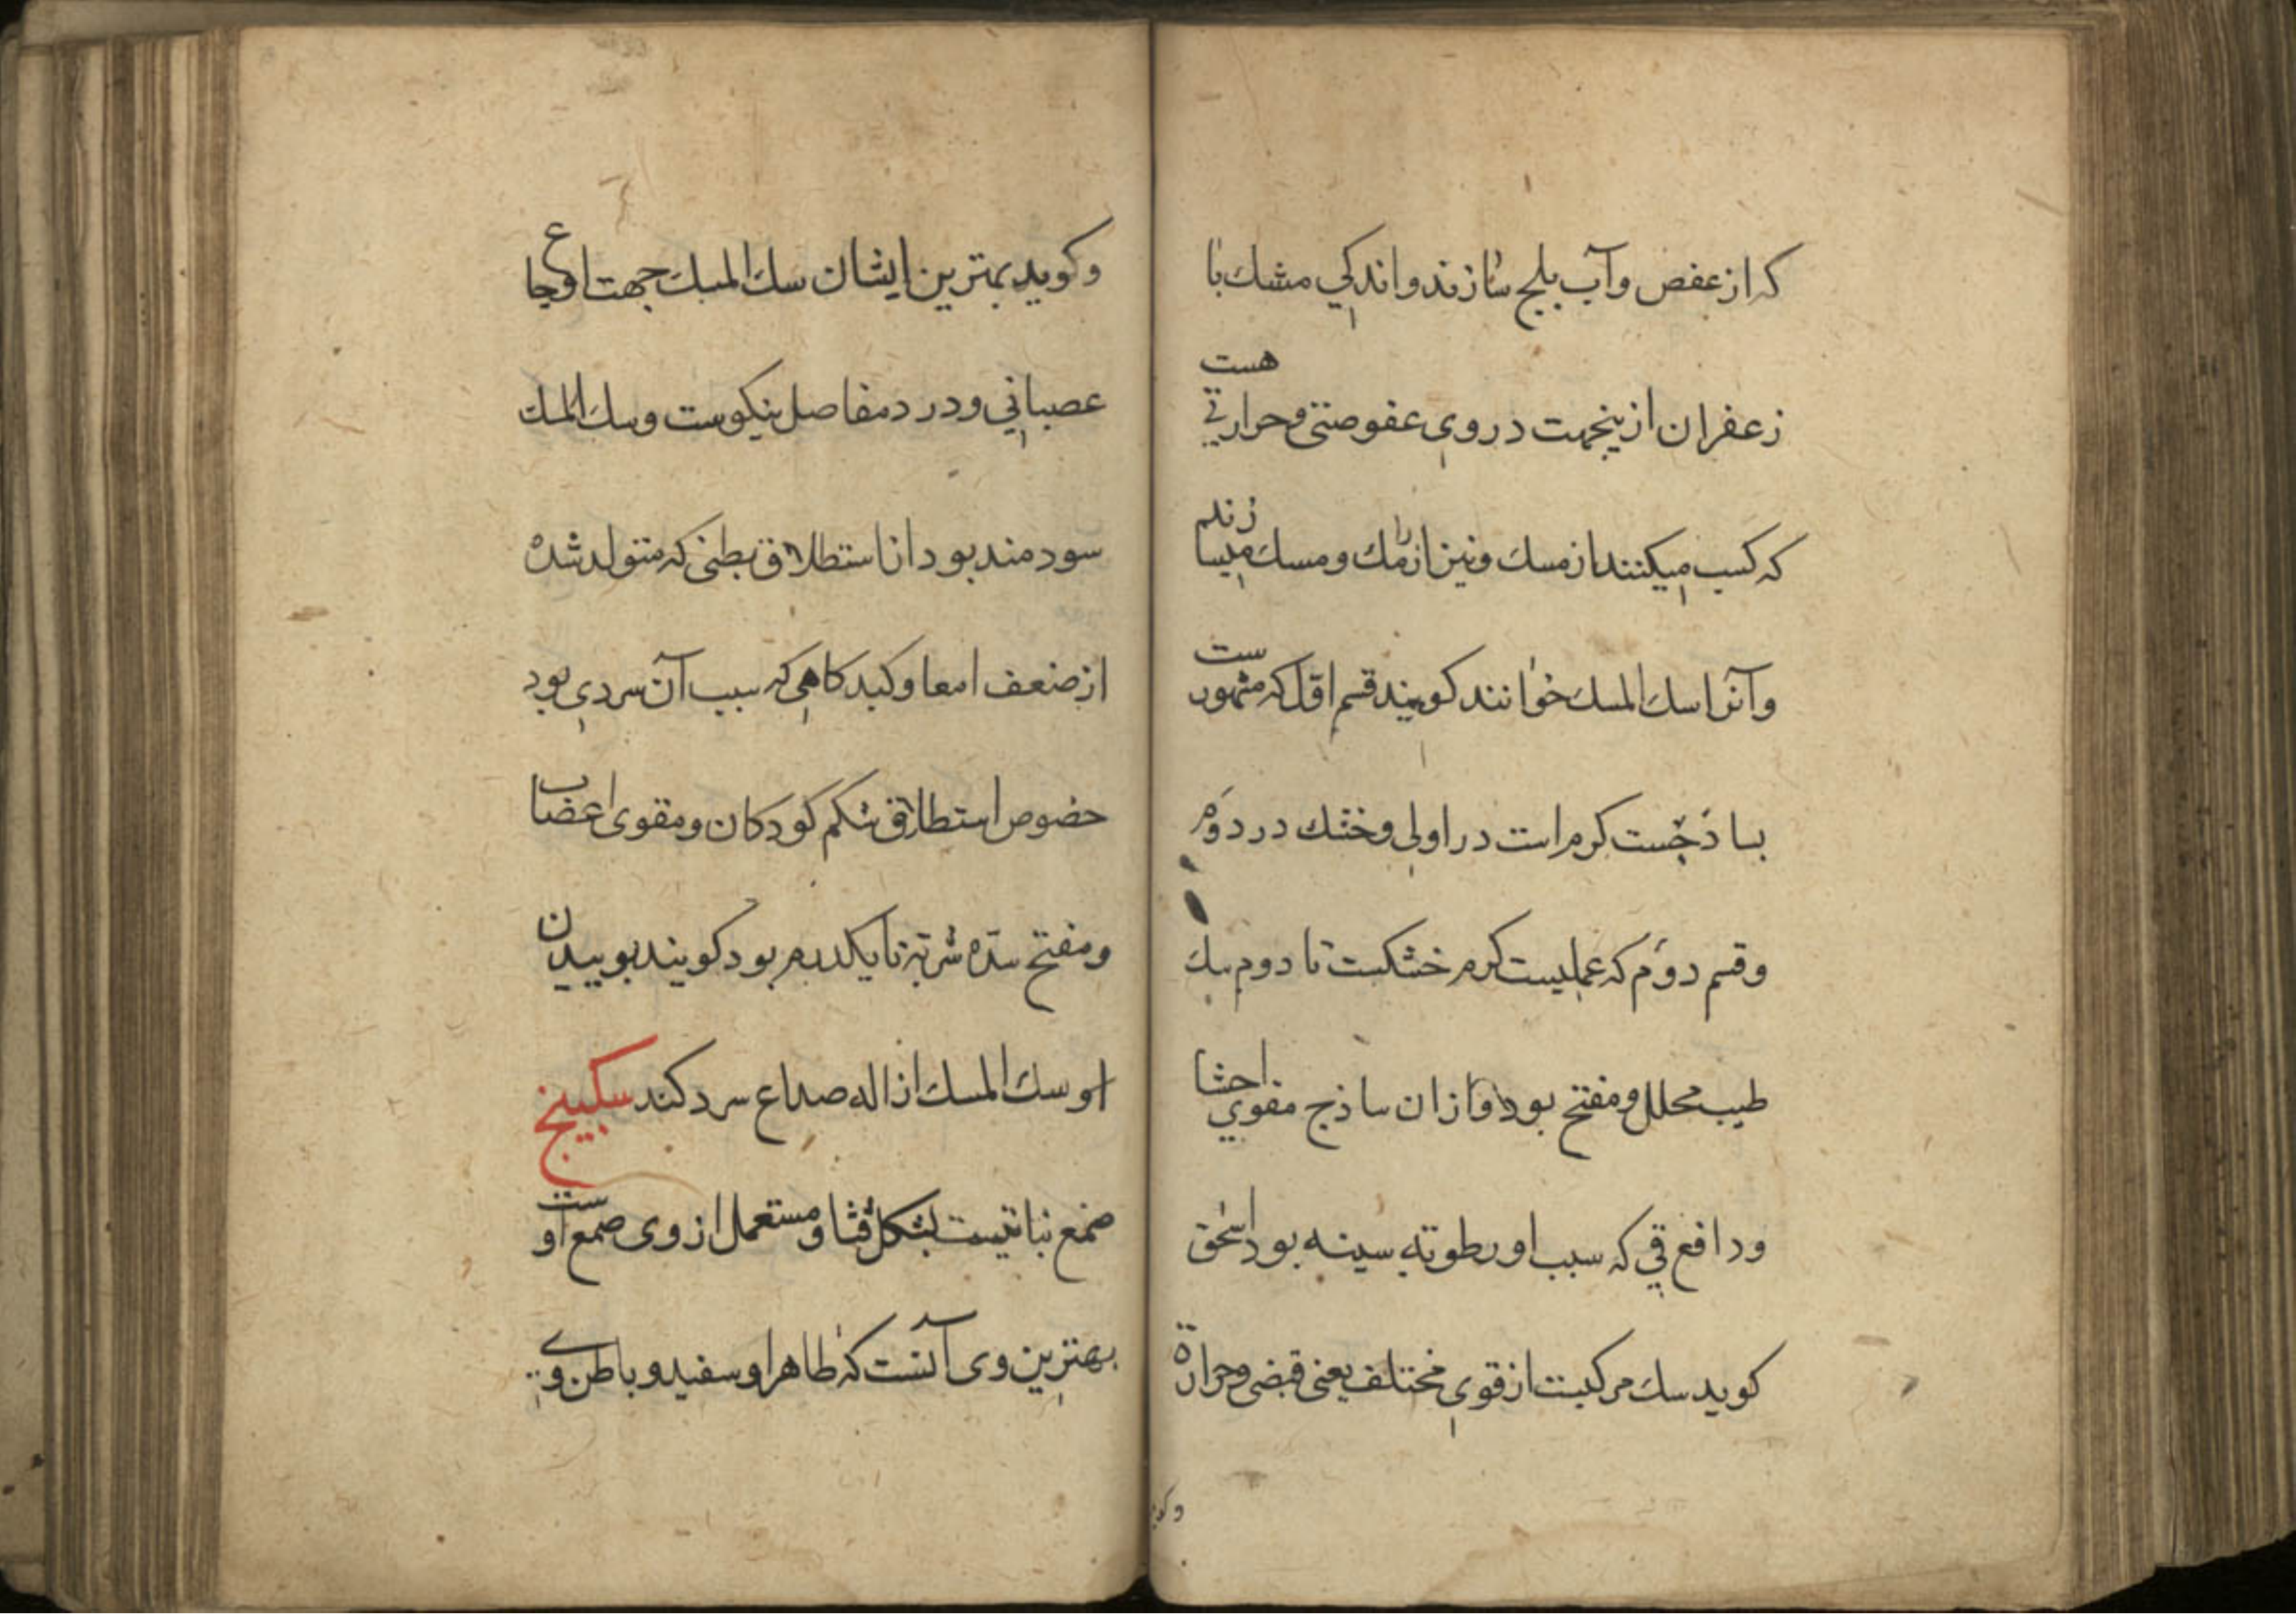 که از عفص وآب بلح سازند واندکي مشك با
زعفران ازینجهت دروي عفوصتی وحرارتي هست
که کسب میکنند از مسك ونیز از رامك ومسك میسازند
وآنرا سك المسك خوانند کویند قسم اول که مشهورست
بساذجست کرم است در اولي وخشك در دوم
وقسم دوم که عملیست کرم خشکست تا دوم سك
طیب محلل ومفتح بود وازان ساذج مقوي احشا
ودافع قي که سبب او رطوبة سینه بود اسحق
کوید سك مرکبست از قوي مختلف یعنی قبضی وحرارة
وکوید
وکوید بهترین ایشان سك المسك جهت اوجاع
عصبانی ودرد مفاصل نیکوست وسك المسك
سودمند بود از استطلاق بطنی که متولد شده
از ضعف امعا وکبد کاهي که سبب آن سردي بود
خصوص استطلاق شکم کودکان ومقوی اعضاب
ومفتح سده شربة تا یکدرم بود کویند بوییدن
او سك المسك ازاله صداع سرد کند سکبینج
صمغ نباتیست بشکل قثا ومستعمل از وی صمغ اوست
بهترین وی آنست که ظاهر او سفید وباطن وي